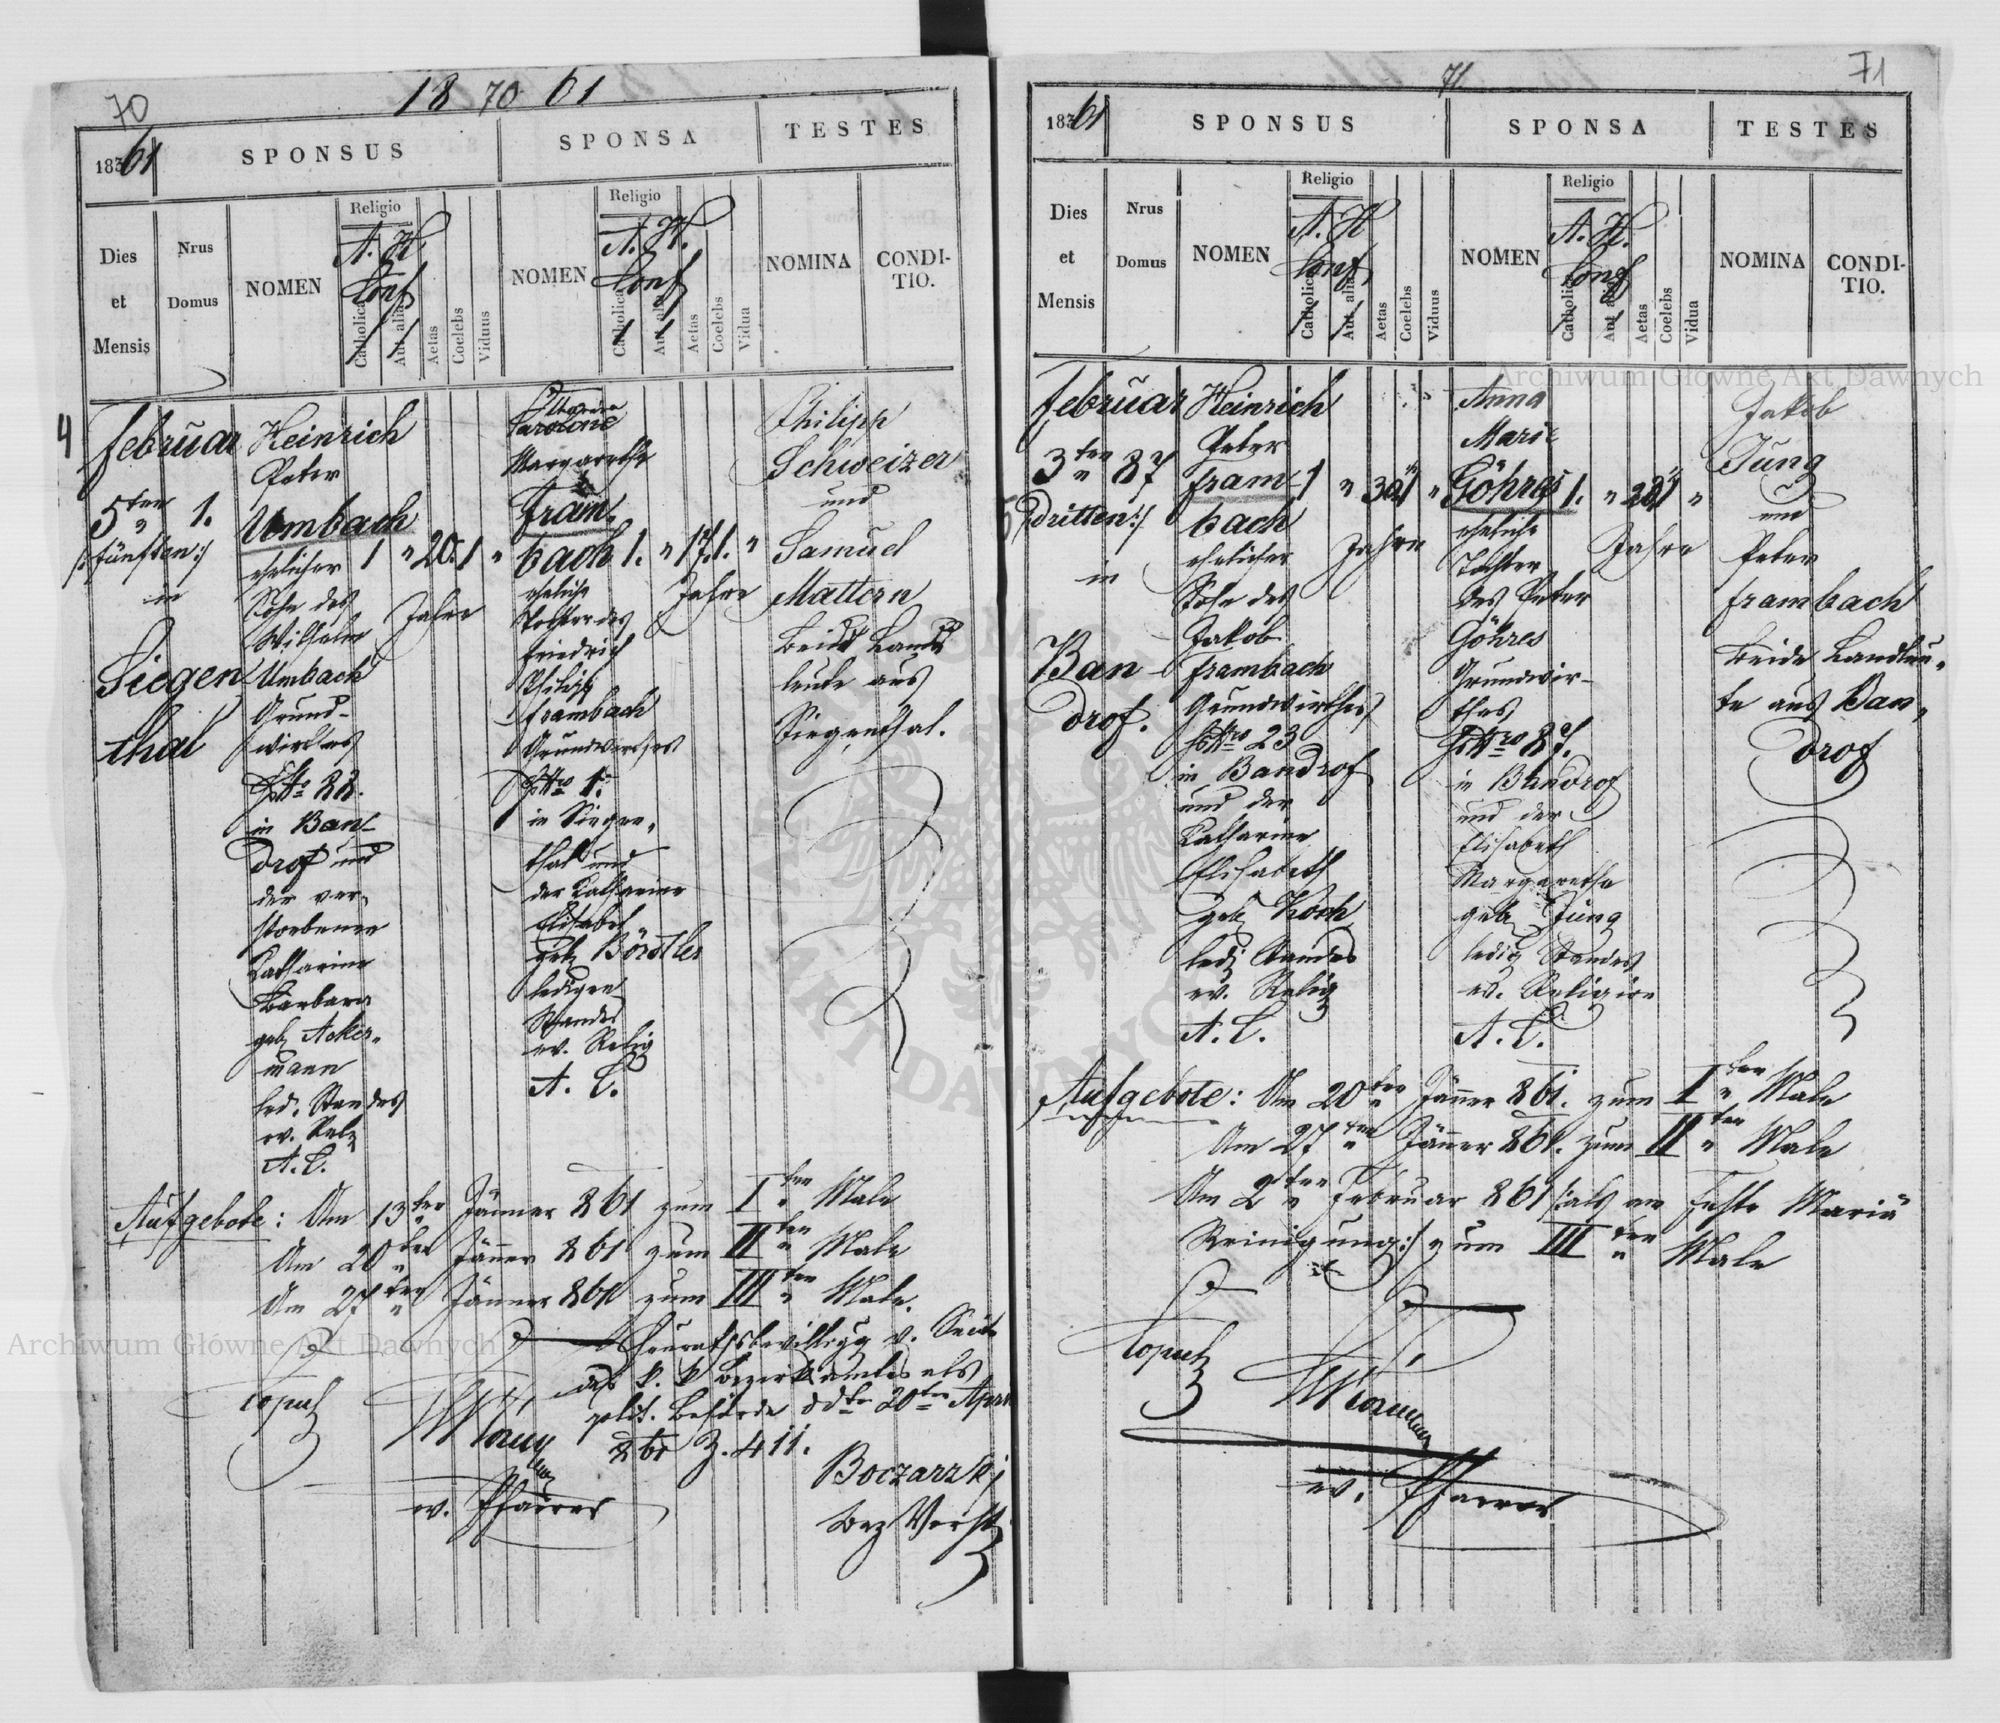 70
18 70 61
1861
SPONSUS
SPONSA
TESTES
Dies
et
Mensis
Nrus
Domus
NOMEN
Religio
A. H.
Conf
Catholica
Aut alia
Aetas
Coelebs
Viduus
NOMEN
Religio
A. H.
Conf
Catholica
Aut alia
Aetas
Coelebs
Vidua
NOMINA
CONDI-
TIO.
4
Februar
5ten 1.
/:fünften:/
in
Siegen
thal
Heinrich
Peter
Umbach
ehelicher 1 " 20. 1 "
Sohn des Jahre
Wilhelm
Umbach
Grund-
wirthes
HsNro 88.
in Ban-
drof und
der ver-
storbenen
Katharine
Barbara
geb Acker-
mann
led. Standes
ev. Relg
A. C.
Karoline
Margaretha
Fram-
bach 1. " 17. 1. "
eheliche Jahre
Tochter des
Friedrich
Philipp
Frambach
Grundwirthes
HsNro 1.
in Siegen-
thal und
der Katharine
Elisabet
geb Börstler
ledigen
Standes
ev. Relig
A. C.
Philipp
Schweizer
und
Samuel
Mattern
beide Land
leute aus
Siegenthal.
Aufgebote: Am 13ten Jänner 861 zum Iten Male
Am 20ten Jänner 861 zum IIten Male
Am 27ten Jänner 861 zum IIIten Male.
Heurathsbewilligg v. Seite
des k. k. Bezirksamtes als
polit. Behörde ddto 20ten April
861 Z. 411.
Boczarzkj
Bez Vorst
Copul
ev. Pfarrer
71
71.
1861
SPONSUS
SPONSA
TESTES
Dies
et
Mensis
Nrus
Domus
NOMEN
Religio
A. H
Conf
Catholica
Aut alia
Aetas
Coelebs
Viduus
NOMEN
Religio
A. H.
Conf
Catholica
Aut alia
Aetas
Coelebs
Vidua
NOMINA
CONDI-
TIO.
5
Februar
3ten 87
/dritten:/
in
Ban
drof.
Heinrich
Peter
Fram- 1 " 30 1 "
bach
ehelicher Jahre
Sohn des
Jakob
Frambach
Grundwirthes
HsNro 23
in Bandrof
und der
Katharine
Elisabeth
geb Koch
ledg Standes
ev. Relig
A. C.
Anna
Marie
Göhres 1. " 28 1 "
eheliche Jahre
Tochter
des Peter
Göhres
Grundwir-
thes
HsNro 87.
in Bandrof
und der
Elisabeth
Margaretha
geb Jung
ledig Standes
ev. Religion
A. C.
Jakob
Jung
und
Peter
Frambach
beide Landleu-
te aus Ban-
drof
Aufgebote: Am 20ten Jänner 861. zum Iten Male
Am 27ten Jänner 861. zum IIten Male
Am 2ten Februar 861 /:als am Feste Mariä
Reinigung:/ zum IIIten Male
Copul
ev. Pfarrer
Archiwum Główne Akt Dawnych
Archiwum Główne Akt Dawnych